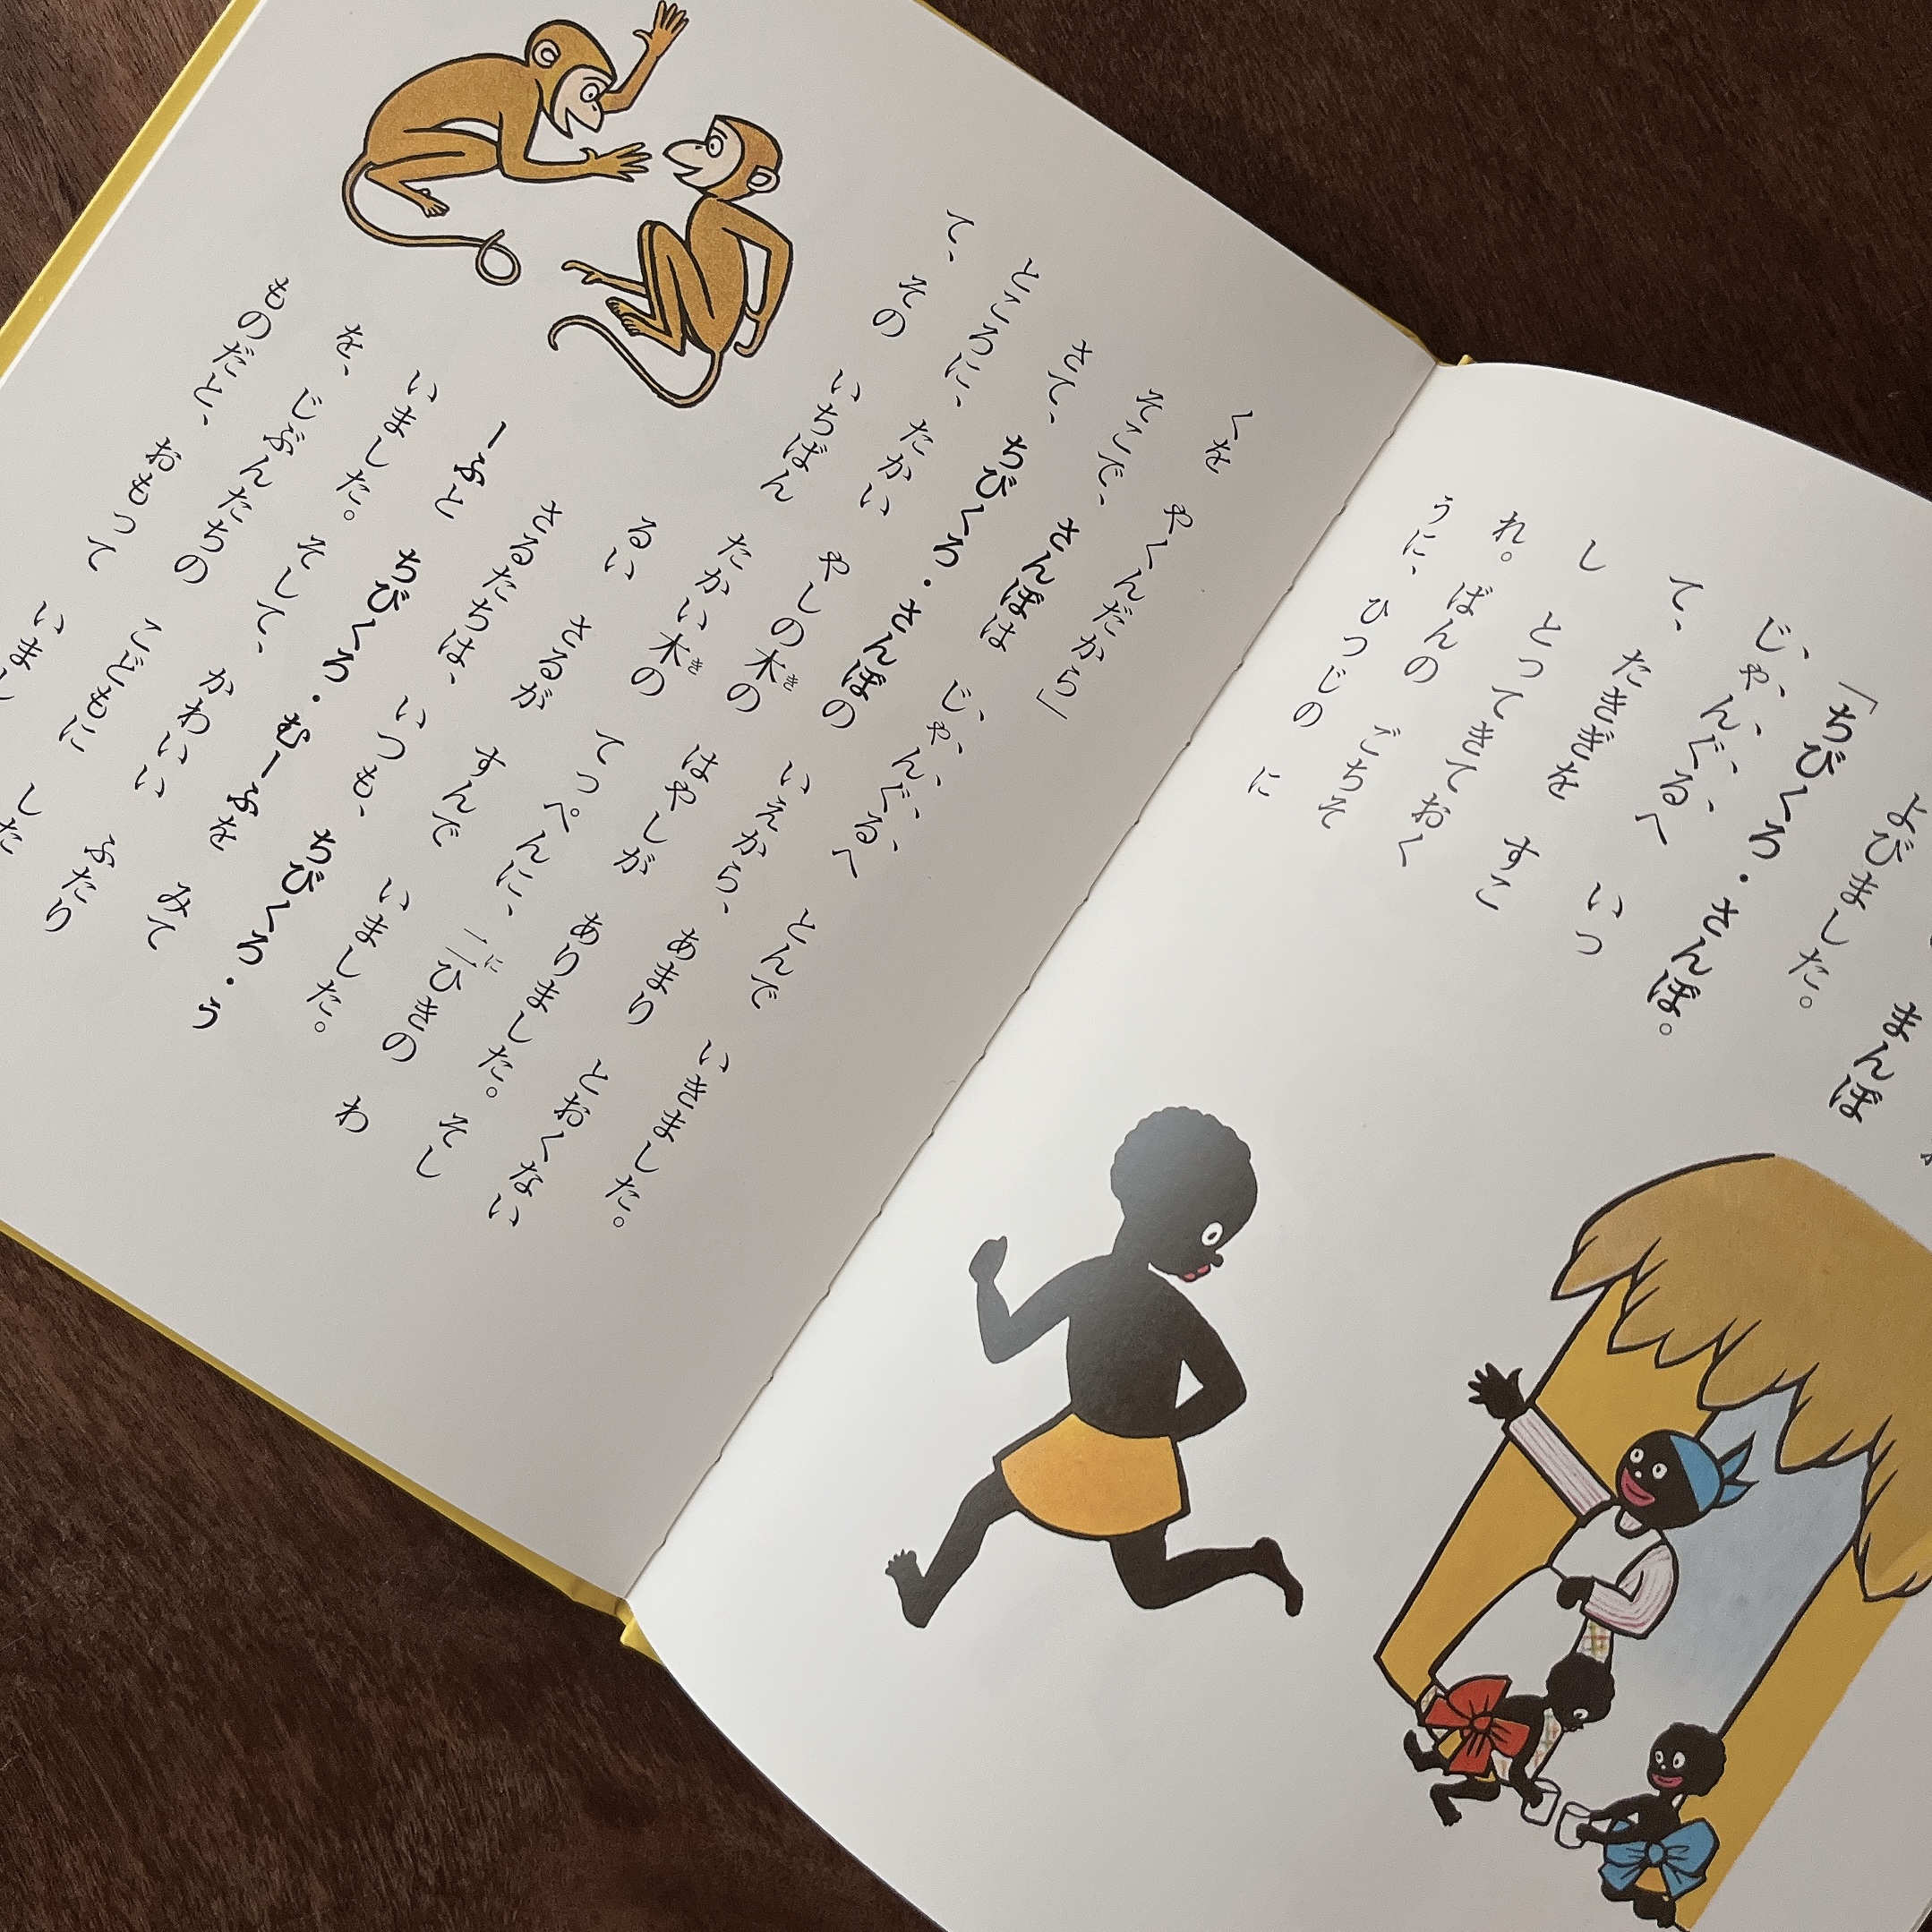 まんぼ
よびました。
「ちびくろ・さんぼ。
じゃんぐるへ いっ
て、たきぎを すこ
し とってきておく
れ。ばんの ごちそ
うに、ひつじの に
くを やくんだから」
そこで、さんぼは じゃんぐるへ とんで いきました。
さて、ちびくろ・さんぼの いえから、あまり とおくない
ところに、たかい やしの木の はやしが ありました。そし
て、その いちばん たかい木の てっぺんに、二ひきの わ
るい さるが すんで いました。
さるたちは、いつも、ちびくろ・う
ーふと ちびくろ・むーふを みて
いました。そして、かわいい ふたり
を、じぶんたちの こどもに した
ものだと、おもって いまし